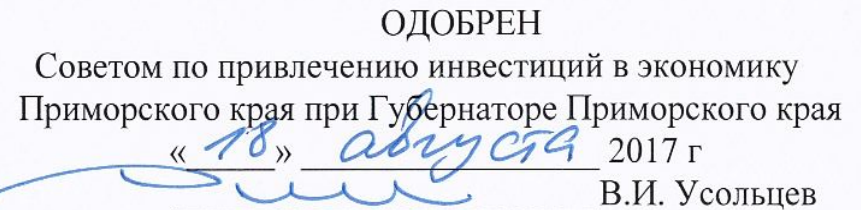 ОДОБРЕН
Советом по привлечению инвестиций в экономику
Приморского края при Губернаторе Приморского края
«18» августа 2017 г
В.И. Усольцев